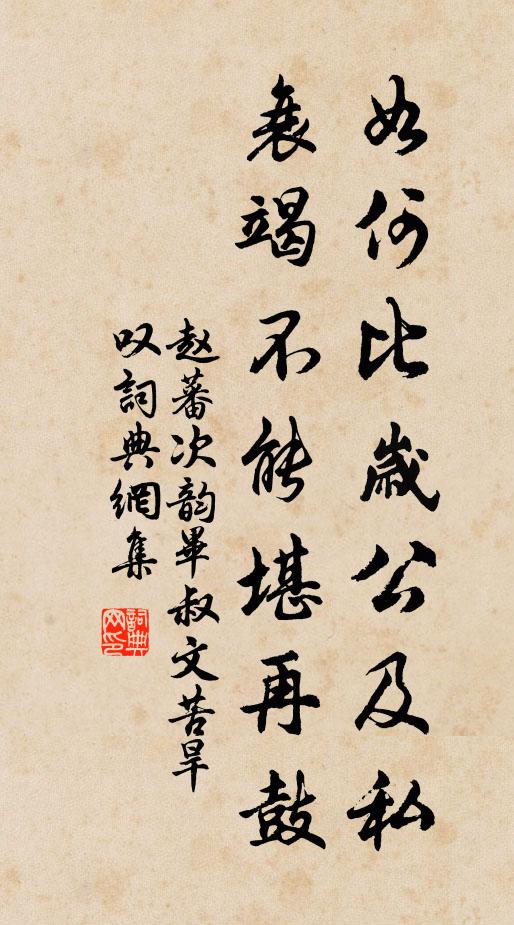 如何比歲公及私
衰竭不能堪再鼓
赵蕃次韵畢叔文苦旱
叹詞典網集
詞典网印